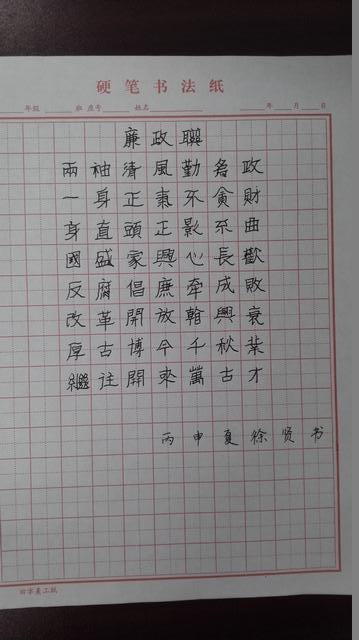 硬笔书法纸
年级 班 座号 姓名 年 月 日
廉政聯
兩袖清風勤為政
一身正氣不貪財
身直頭正影不曲
國盛家興心長歡
反腐倡廉牵成敗
改革開放翰興衰
厚古博今千秋業
繼往開來萬古才
丙申夏徐贤书